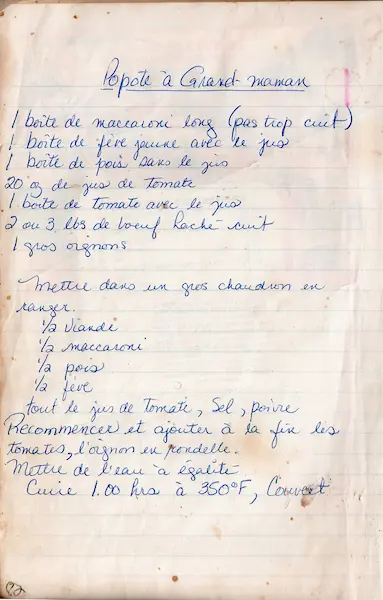 Popote à Grand-maman
1 boîte de maccaroni long (pas trop cuit)
1 boîte de fève jaune avec le jus
1 boîte de pois sans le jus
20 oz de jus de tomate
1 boîte de tomate avec le jus
2 ou 3 lbs de boeuf haché cuit
1 gros oignons
Mettre dans un gros chaudron en
ranger.
1/2 viande
1/2 maccaroni
1/2 pois
1/2 fève
tout le jus de tomate, Sel, poivre
Recommencer et ajouter à la fin les
tomates, l'oignon en rondelle.
Mettre de l'eau à égalité
Cuire 1.00 hrs à 350°F, Couvert